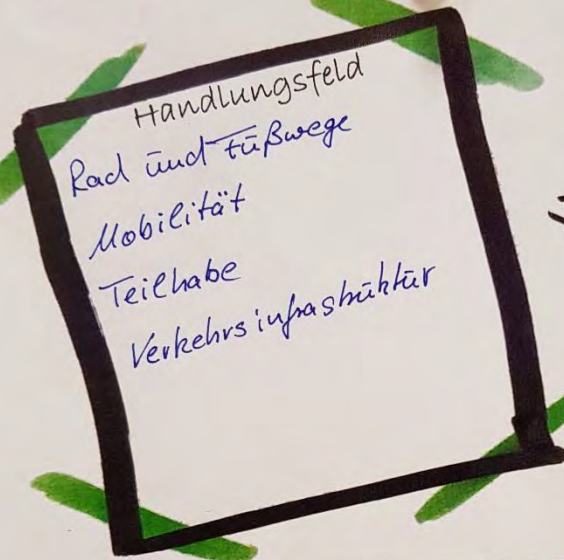 Handlungsfeld
Rad und Fußwege
Mobilität
Teilhabe
Verkehrsinfrastruktur